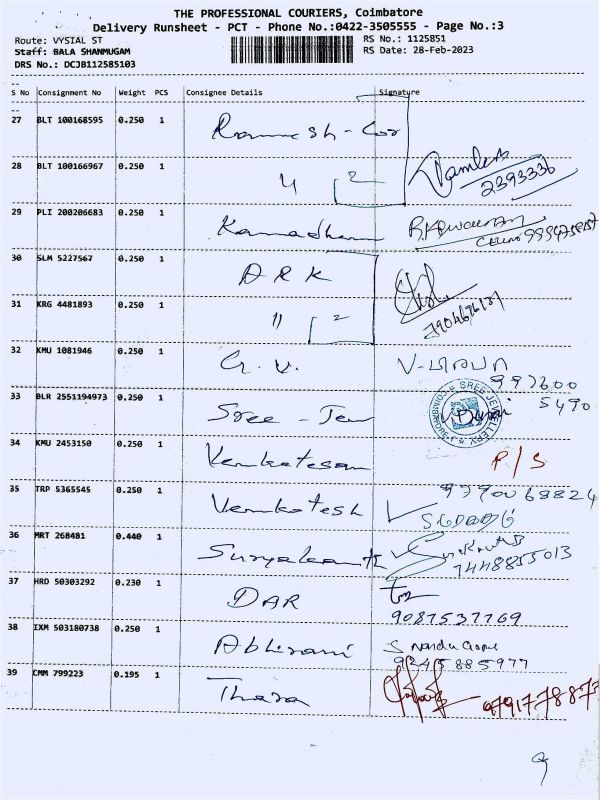 THE PROFESSIONAL COURIERS, Coimbatore
Delivery Runsheet - PCT - Phone No.:0422-3505555 - Page No.:3
Route: VYSIAL ST
RS No.: 1125851
Staff: BALA SHANMUGAM
RS Date: 28-Feb-2023
DRS No.: DCJB112585103
S No Consignment No Weight PCS Consignee Details Signature
27 BLT 100168595 0.250 1 Ramesh - Cor
28 BLT 100166967 0.250 1 4 2
2393336
29 PLI 200206683 0.250 1
30 SLM 5227567 0.250 1 DRK
31 KRG 4481893 0.250 1 11 2
32 KMU 1081946 0.250 1 G.V. V-
997600
33 BLR 2551194973 0.250 1 Sree - Jew
5490
SREE JEWELLERY
34 KMU 2453150 0.250 1 Venkatesan P/S
35 TRP 5365545 0.250 1 Venkatesh
36 MRT 268481 0.440 1 Suryakanth
7448855013
37 HRD 50303292 0.230 1 DAR
9087537769
38 IXM 503180738 0.250 1 Abhirami S Nandu Gopal
9245885977
39 CMM 799223 0.195 1 Thara